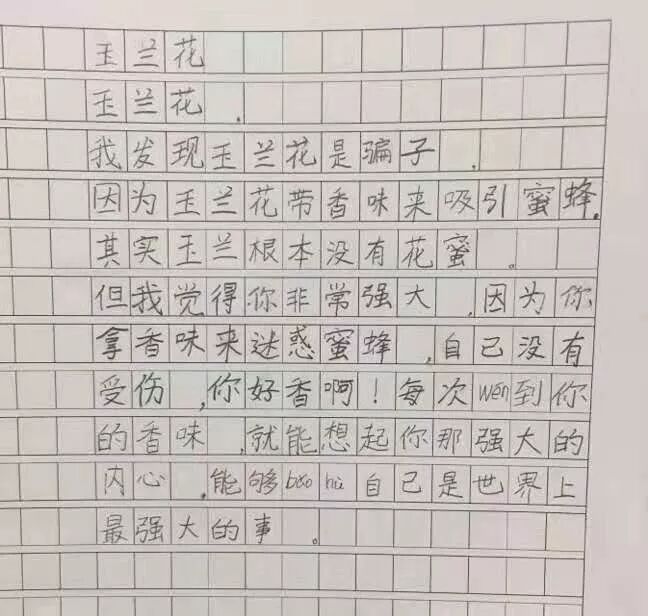 玉兰花
玉兰花，
我发现玉兰花是骗子，
因为玉兰花带香味来吸引蜜蜂，
其实玉兰根本没有花蜜。
但我觉得你非常强大，因为你
拿香味来迷惑蜜蜂，自己没有
受伤，你好香啊！每次wén到你
的香味，就能想起你那强大的
内心，能够bǎo hù自己是世界上
最强大的事。